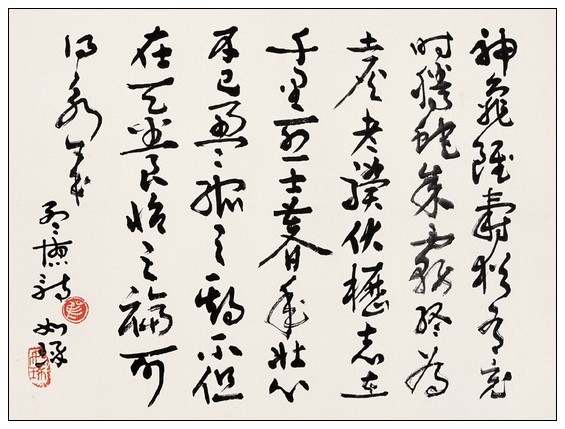 神龜雖壽猶有竟
時騰蛇乘霧終為
土灰老驥伏櫪志在
千里烈士暮年壯心
不已盈縮之期不但
在天養怡之福可
得永年
孟德詩